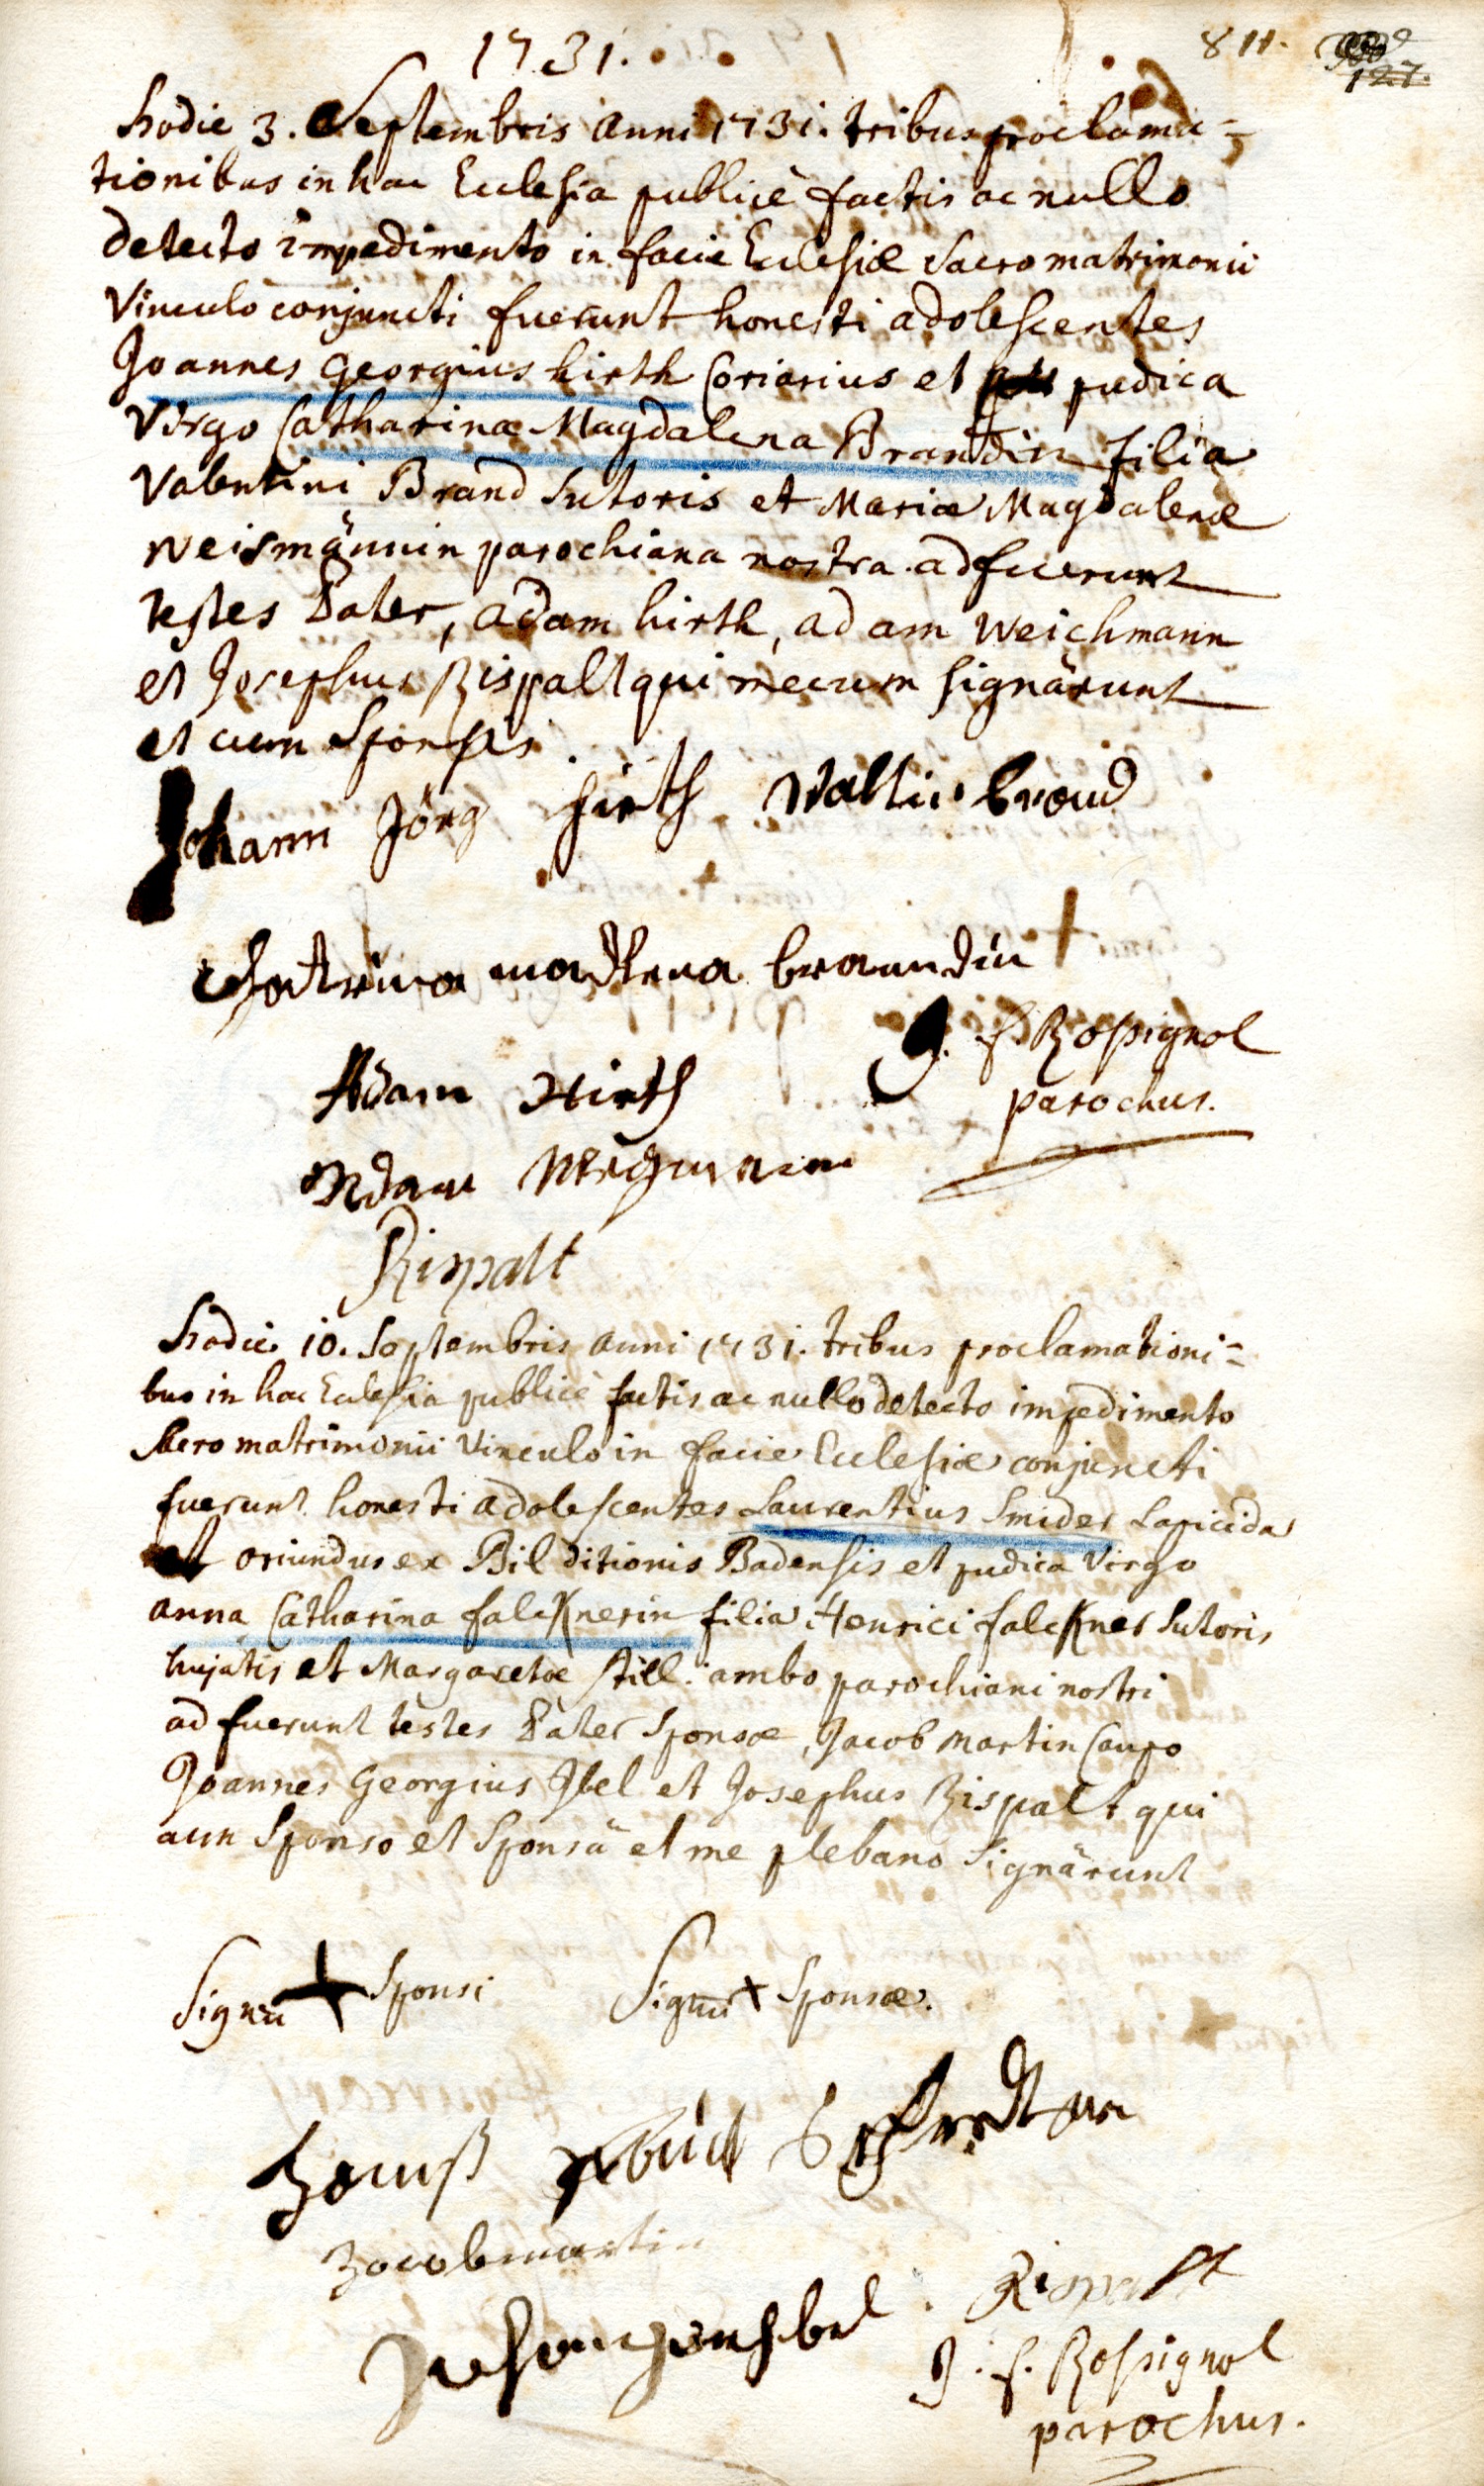 1731.
811.
127.
hodie 3. Septembris anni 1731. tribus proclama=
tionibus in hac Ecclesia publicè factis ac nullo
detecto impedimento in facie Ecclesiæ Sacro matrimonii
Vinculo conjuncti fuerunt honesti adolescentes
Joannes Georgius hirth Coriarius et pudica
Virgo Catharina Magdalena Brandin filia
Valentini Brand Sutoris et Mariæ Magdalenæ
Weismännin parochiana nostra. adfuerunt
testes Pater, adam hirth, adam Weichmann
et Josephus Rispalt qui mecum signârunt
et cum Sponsis.
Johann Jörg hirth Waltin brand
Catrina madlena braundin +
J. f. Rossignol
Adam Hirth
parochus.
Adam
Rispalt
hodie 10. Septembris anni 1731. tribus proclamationi=
bus in hac Ecclesia publicè factis ac nullo detecto impedimento
Sacro matrimonii Vinculo in facie Ecclesiæ conjuncti
fuerunt honesti adolescentes Laurentius Smider Lapicida
oriundus ex Bil ditionis Badensis et pudica Virgo
anna Catharina falcknerin filia Henrici falckner Sutoris
hujatis et Margaretæ still. ambo parochiani nostri
adfuerunt testes Pater Sponsæ, Jacob Martin Caupo
Joannes Georgius Jbel et Josephus Rispalt qui
cum Sponso et Sponsâ et me plebano Signârunt
Signu + Sponsi Signu + Sponsæ.
Jacob martin
Rispalt
J. f. Rossignol
parochus.